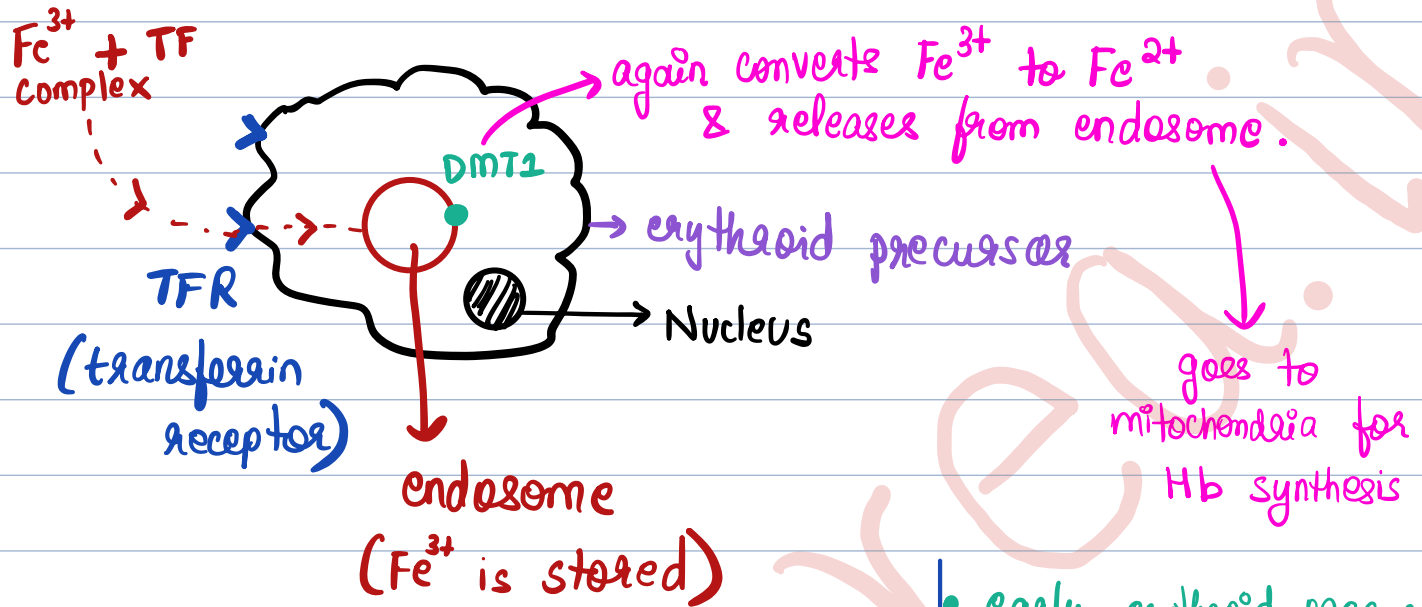 Fe³⁺ + TF
complex
again converts Fe³⁺ to Fe²⁺
& releases from endosome.
DMT1
erythroid precursor
TFR
(transferrin
receptor)
Nucleus
goes to
mitochondria for
Hb synthesis
endosome
(Fe³⁺ is stored)
early erythroid